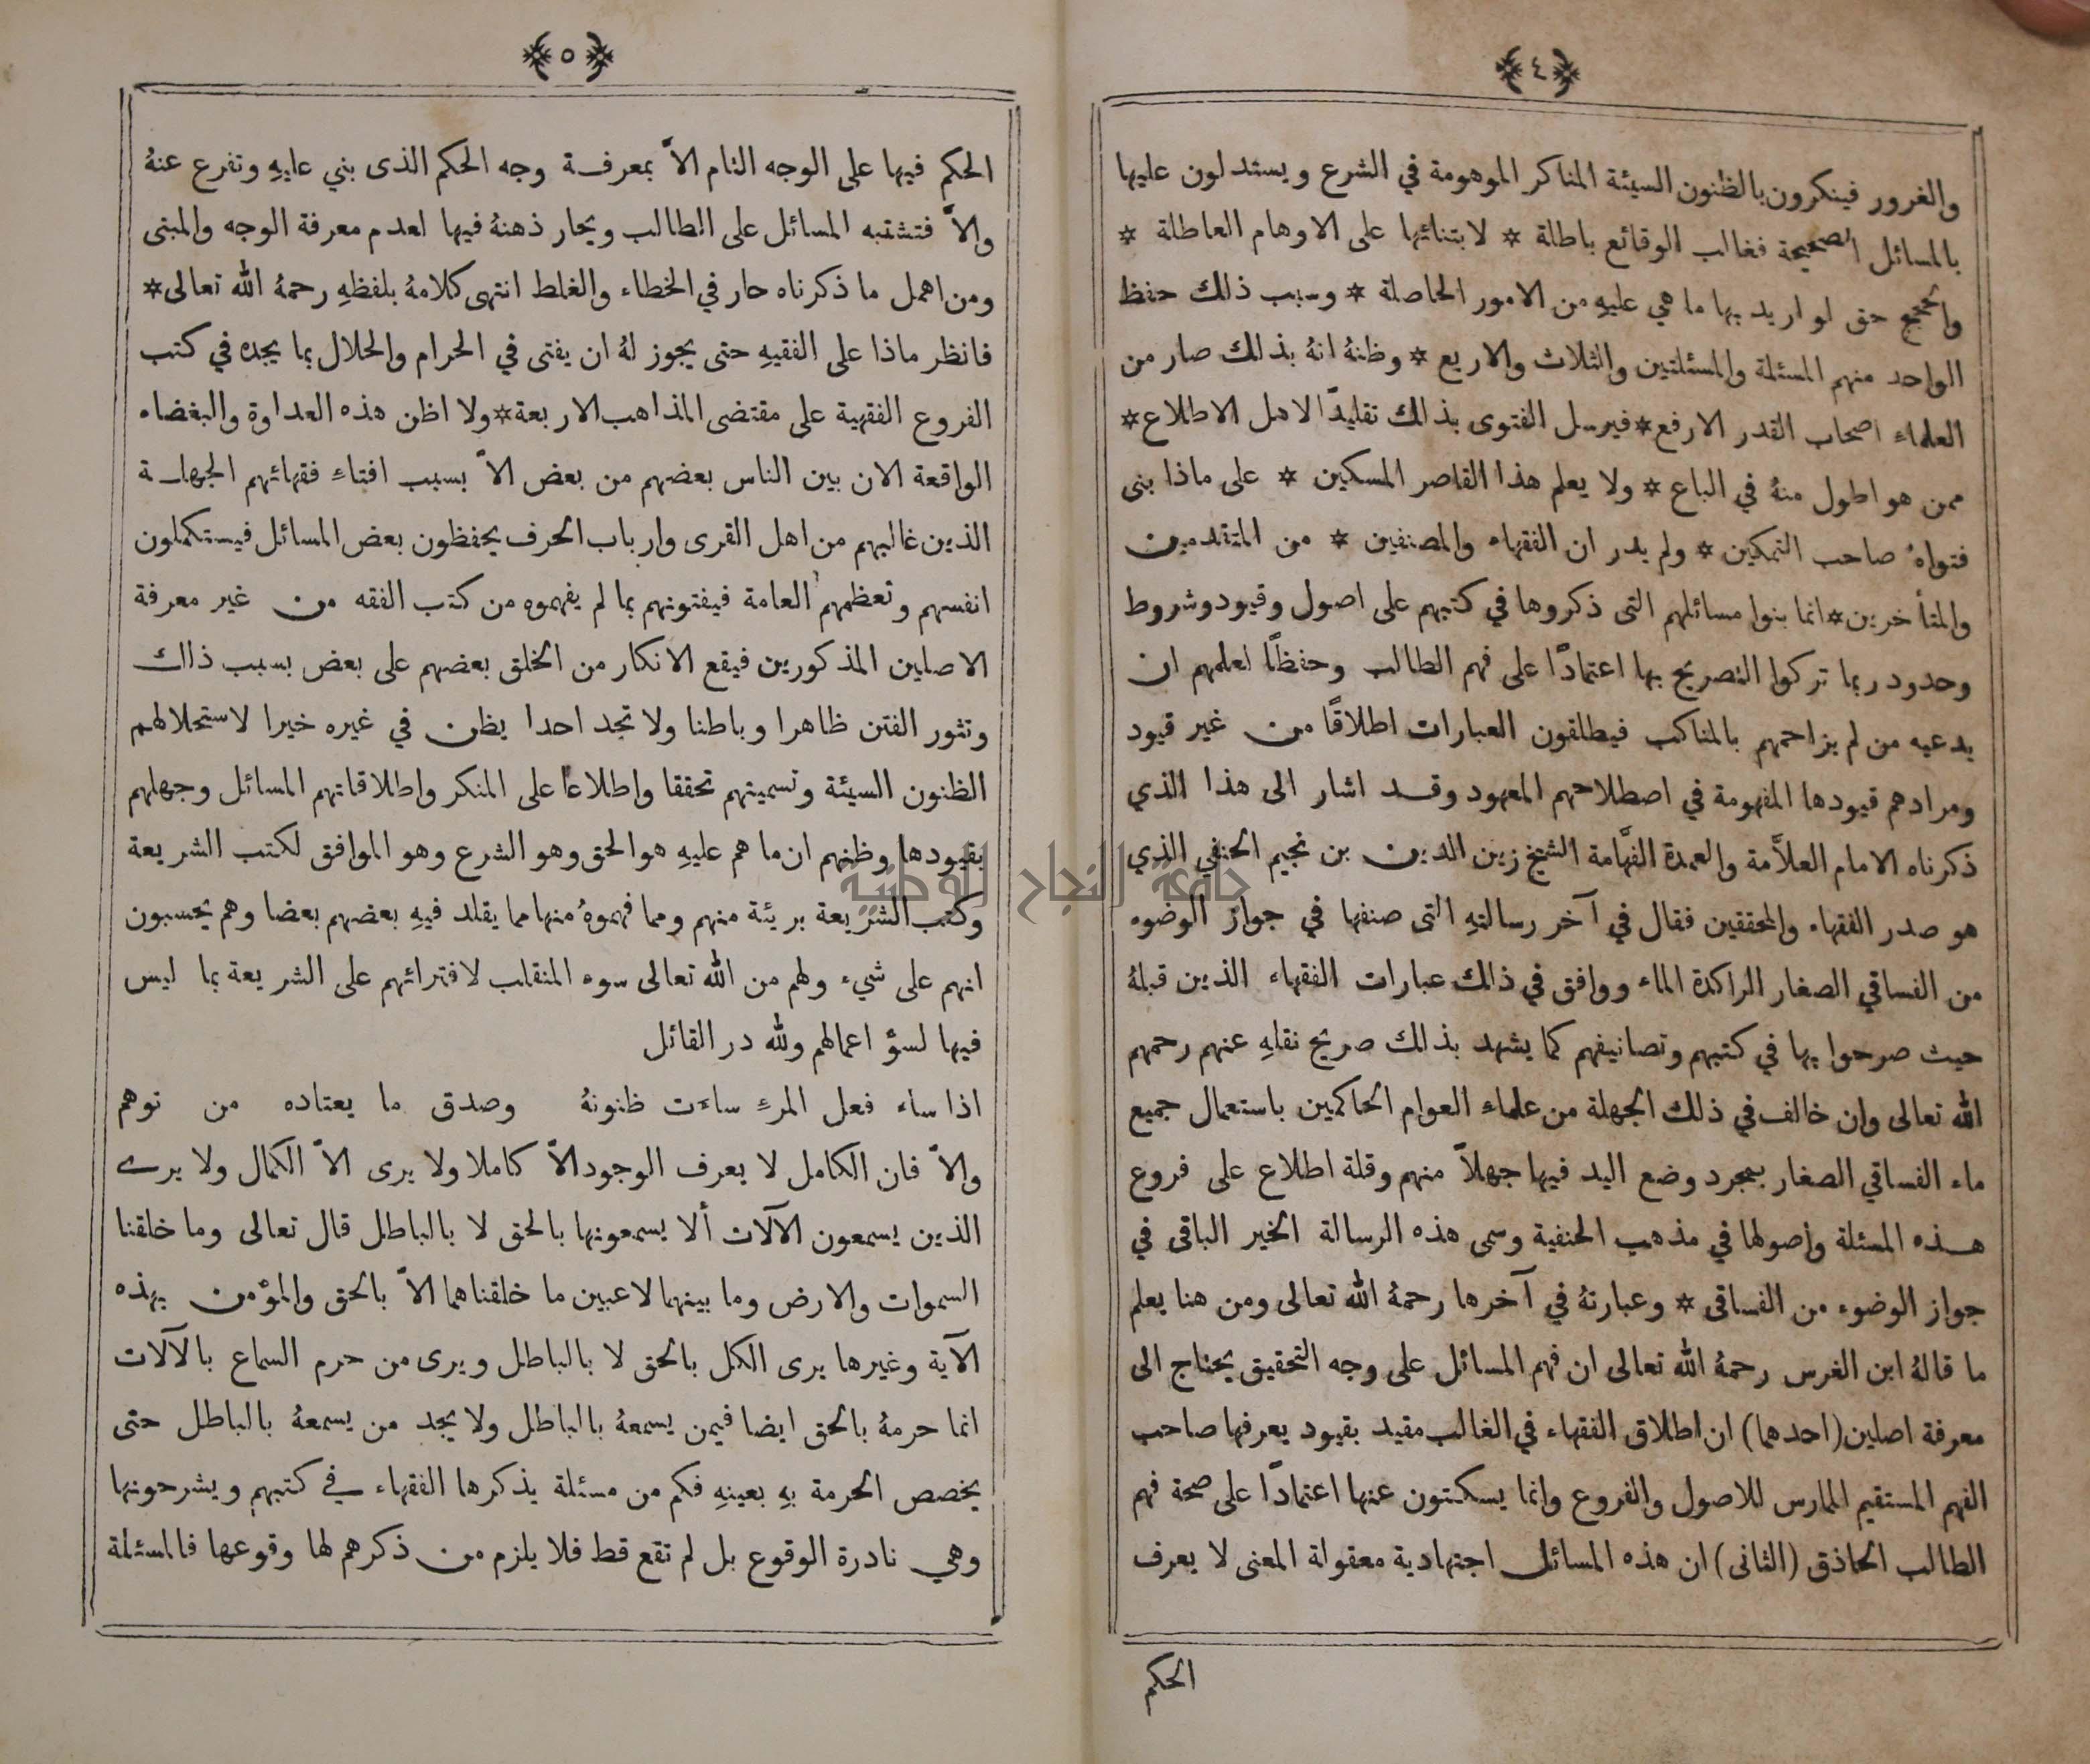 ٤
والغرور فينكرون بالظنون السيئة المناكر الموهومة في الشرع ويستدلون عليها
بالمسائل الصحيحة فغالب الوقائع باطلة * لابتنائها على الاوهام العاطلة *
والحجج حق لو اريد بها ما هي عليهِ من الامور الحاصلة * وسبب ذلك حفظ
الواحد منهم المسئلة والمسئلتين والثلاث والاربع * وظنهُ انهُ بذلك صار من
العلماء اصحاب القدر الارفع * فيرسل الفتوى بذلك تقليدًا لاهل الاطلاع *
ممن هو اطول منهُ في الباع * ولا يعلم هذا القاصر المسكين * على ماذا بنى
فتواهُ صاحب التمكين * ولم يدر ان الفقهاء والمصنفين * من المتقدمين
والمتأخرين * انما بنوا مسائلهم التى ذكروها في كتبهم على اصول وقيود وشروط
وحدود ربما تركوا التصريح بها اعتمادًا على فهم الطالب وحفظًا لعلمهم ان
يدعيه من لم يزاحمهم بالمناكب فيطلقون العبارات اطلاقًا من غير قيود
ومرادهم قيودها المفهومة في اصطلاحهم المعهود وقد اشار الى هذا الذي
ذكرناه الامام العلاَّمة والعمدة الفهَّامة الشيخ زين الدين بن نجيم الحنفي الذي
هو صدر الفقهاء والمحققين فقال في آخر رسالتهِ التى صنفها في جواز الوضوء
من الفساقي الصغار الراكدة الماء ووافق في ذلك عبارات الفقهاء الذين قبلهُ
حيث صرحوا بها في كتبهم وتصانيفهم كما يشهد بذلك صريح نقلهِ عنهم رحمهم
الله تعالى وان خالف في ذلك الجهلة من علماء العوام الحاكمين باستعمال جميع
ماء الفساقي الصغار بمجرد وضع اليد فيها جهلاً منهم وقلة اطلاع على فروع
هذه المسئلة واصولها في مذهب الحنفية وسمى هذه الرسالة الخير الباقى في
جواز الوضوء من الفساقى * وعبارتهُ في آخرها رحمهُ الله تعالى ومن هنا يعلم
ما قالهُ ابن الغرس رحمهُ الله تعالى ان فهم المسائل على وجه التحقيق يحتاج الى
معرفة اصلين (احدهما) ان اطلاق الفقهاء في الغالب مقيد بقيود يعرفها صاحب
الفهم المستقيم الممارس للاصول والفروع وانما يسكتون عنها اعتمادًا على صحة فهم
الطالب الحاذق (الثانى) ان هذه المسائل اجتهادية معقولة المعنى لا يعرف
الحكم
٥
الحكم فيها على الوجه التام الاّ بمعرفة وجه الحكم الذى بني عليهِ وتفرع عنهُ
والاّ فتشتبه المسائل على الطالب ويحار ذهنهُ فيها لعدم معرفة الوجه والمبنى
ومن اهمل ما ذكرناه حار في الخطاء والغلط انتهى كلامهُ بلفظهِ رحمهُ الله تعالى *
فانظر ماذا على الفقيهِ حتى يجوز لهُ ان يفتى في الحرام والحلال بما يجده في كتب
الفروع الفقهية على مقتضى المذاهب الاربعة * ولا اظن هذه العداوة والبغضاء
الواقعة الان بين الناس بعضهم من بعض الاّ بسبب افتاءِ فقهائهم الجهلة
الذين غالبهم من اهل القرى وارباب الحرف يحفظون بعض المسائل فيستكملون
انفسهم وتعظمهم العامة فيفتونهم بما لم يفهموه من كتب الفقه من غير معرفة
الاصلين المذكورين فيقع الانكار من الخلق بعضهم على بعض بسبب ذلك
وتثور الفتن ظاهرا وباطنا ولا تجد احدا يظن في غيره خيرا لاستحلالهم
الظنون السيئة وتسميتهم تحققا واطلاعًا على المنكر واطلاقاتهم المسائل وجهلهم
بقيودها وظنهم ان ما هم عليهِ هو الحق وهو الشرع وهو الموافق لكتب الشريعة
وكتب الشريعة بريئة منهم ومما فهموهُ منها مما يقلد فيهِ بعضهم بعضا وهم يحسبون
انهم على شيء ولهم من الله تعالى سوء المنقلب لافترائهم على الشريعة بما ليس
فيها لسؤ اعمالهم ولله در القائل
اذا ساء فعل المرءِ ساءت ظنونهُ وصدق ما يعتاده من توهم
والاّ فان الكامل لا يعرف الوجود الاّ كاملا ولا يرى الاّ الكمال ولا يرى
الذين يسمعون الآلات ألا يسمعونها بالحق لا بالباطل قال تعالى وما خلقنا
السموات والارض وما بينهما لاعبين ما خلقناهما الاّ بالحق والمؤمن بهذه
الآية وغيرها يرى الكل بالحق لا بالباطل ويرى من حرم السماع بالآلات
انما حرمهُ بالحق ايضا فيمن يسمعهُ بالباطل ولا يجد من يسمعهُ بالباطل حتى
يخصص الحرمة بهِ بعينهِ فكم من مسئلة يذكرها الفقهاء في كتبهم ويشرحونها
وهي نادرة الوقوع بل لم تقع قط فلا يلزم من ذكرهم لها وقوعها فالمسئلة
جامعة النجاح الوطنية